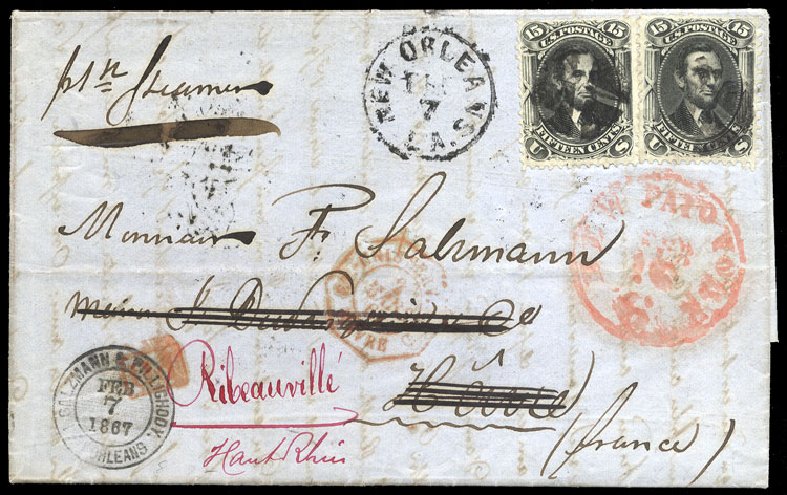 15 U.S. POSTAGE 15
FIFTEEN CENTS
U S
15 U.S. POSTAGE 15
FIFTEEN CENTS
U S
NEW ORLEANS
FEB
7
LA.
pr Steamer
Monsieur F. Salzmann
NEW PAID YORK
Havre
Ribeauvillé
Haut Rhin
(france)
SALZMANN &
FEB
7
1867
ORLEANS